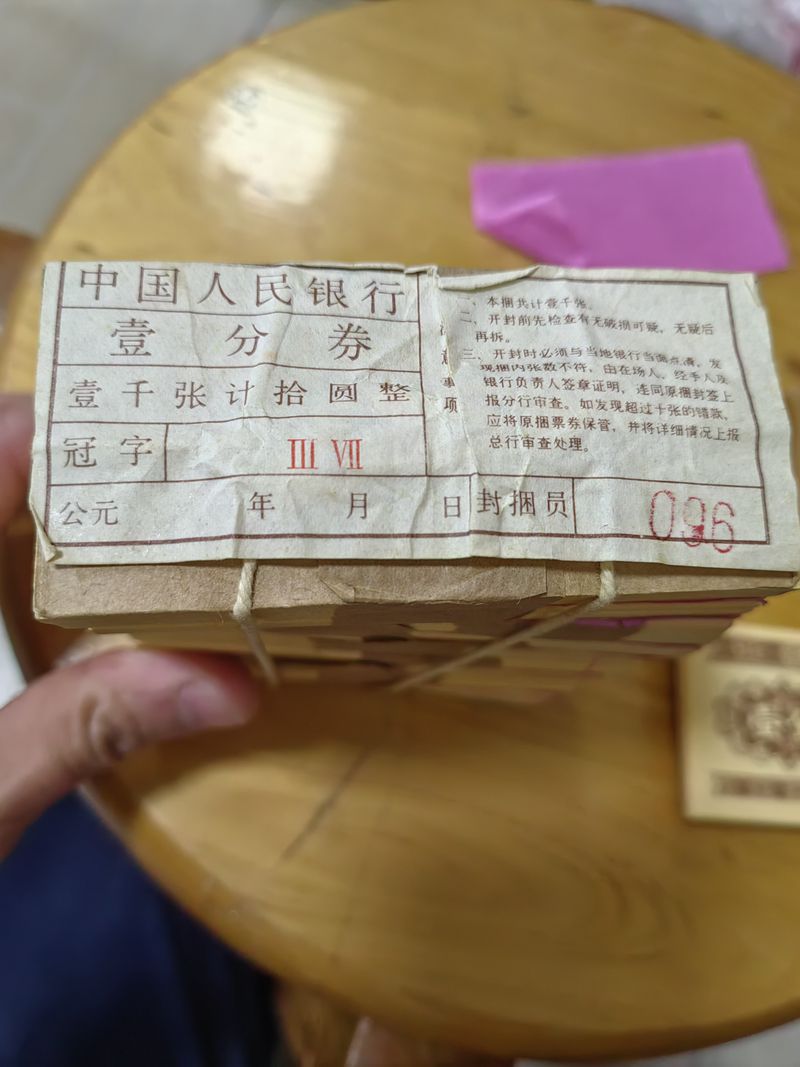 中国人民银行
壹分券
壹千张计拾圆整
冠字 III VII
公元 年 月 日 封捆员 096
注意事项
一、本捆共计壹千张。
二、开封前先检查有无破损可疑，无疑后
再拆。
三、开封时必须与当地银行当面点清，发
现捆内张数不符，由在场人、经手人及
银行负责人签章证明，连同原捆封签上
报分行审查。如发现超过十张的错款，
应将原捆票券保管，并将详细情况上报
总行审查处理。